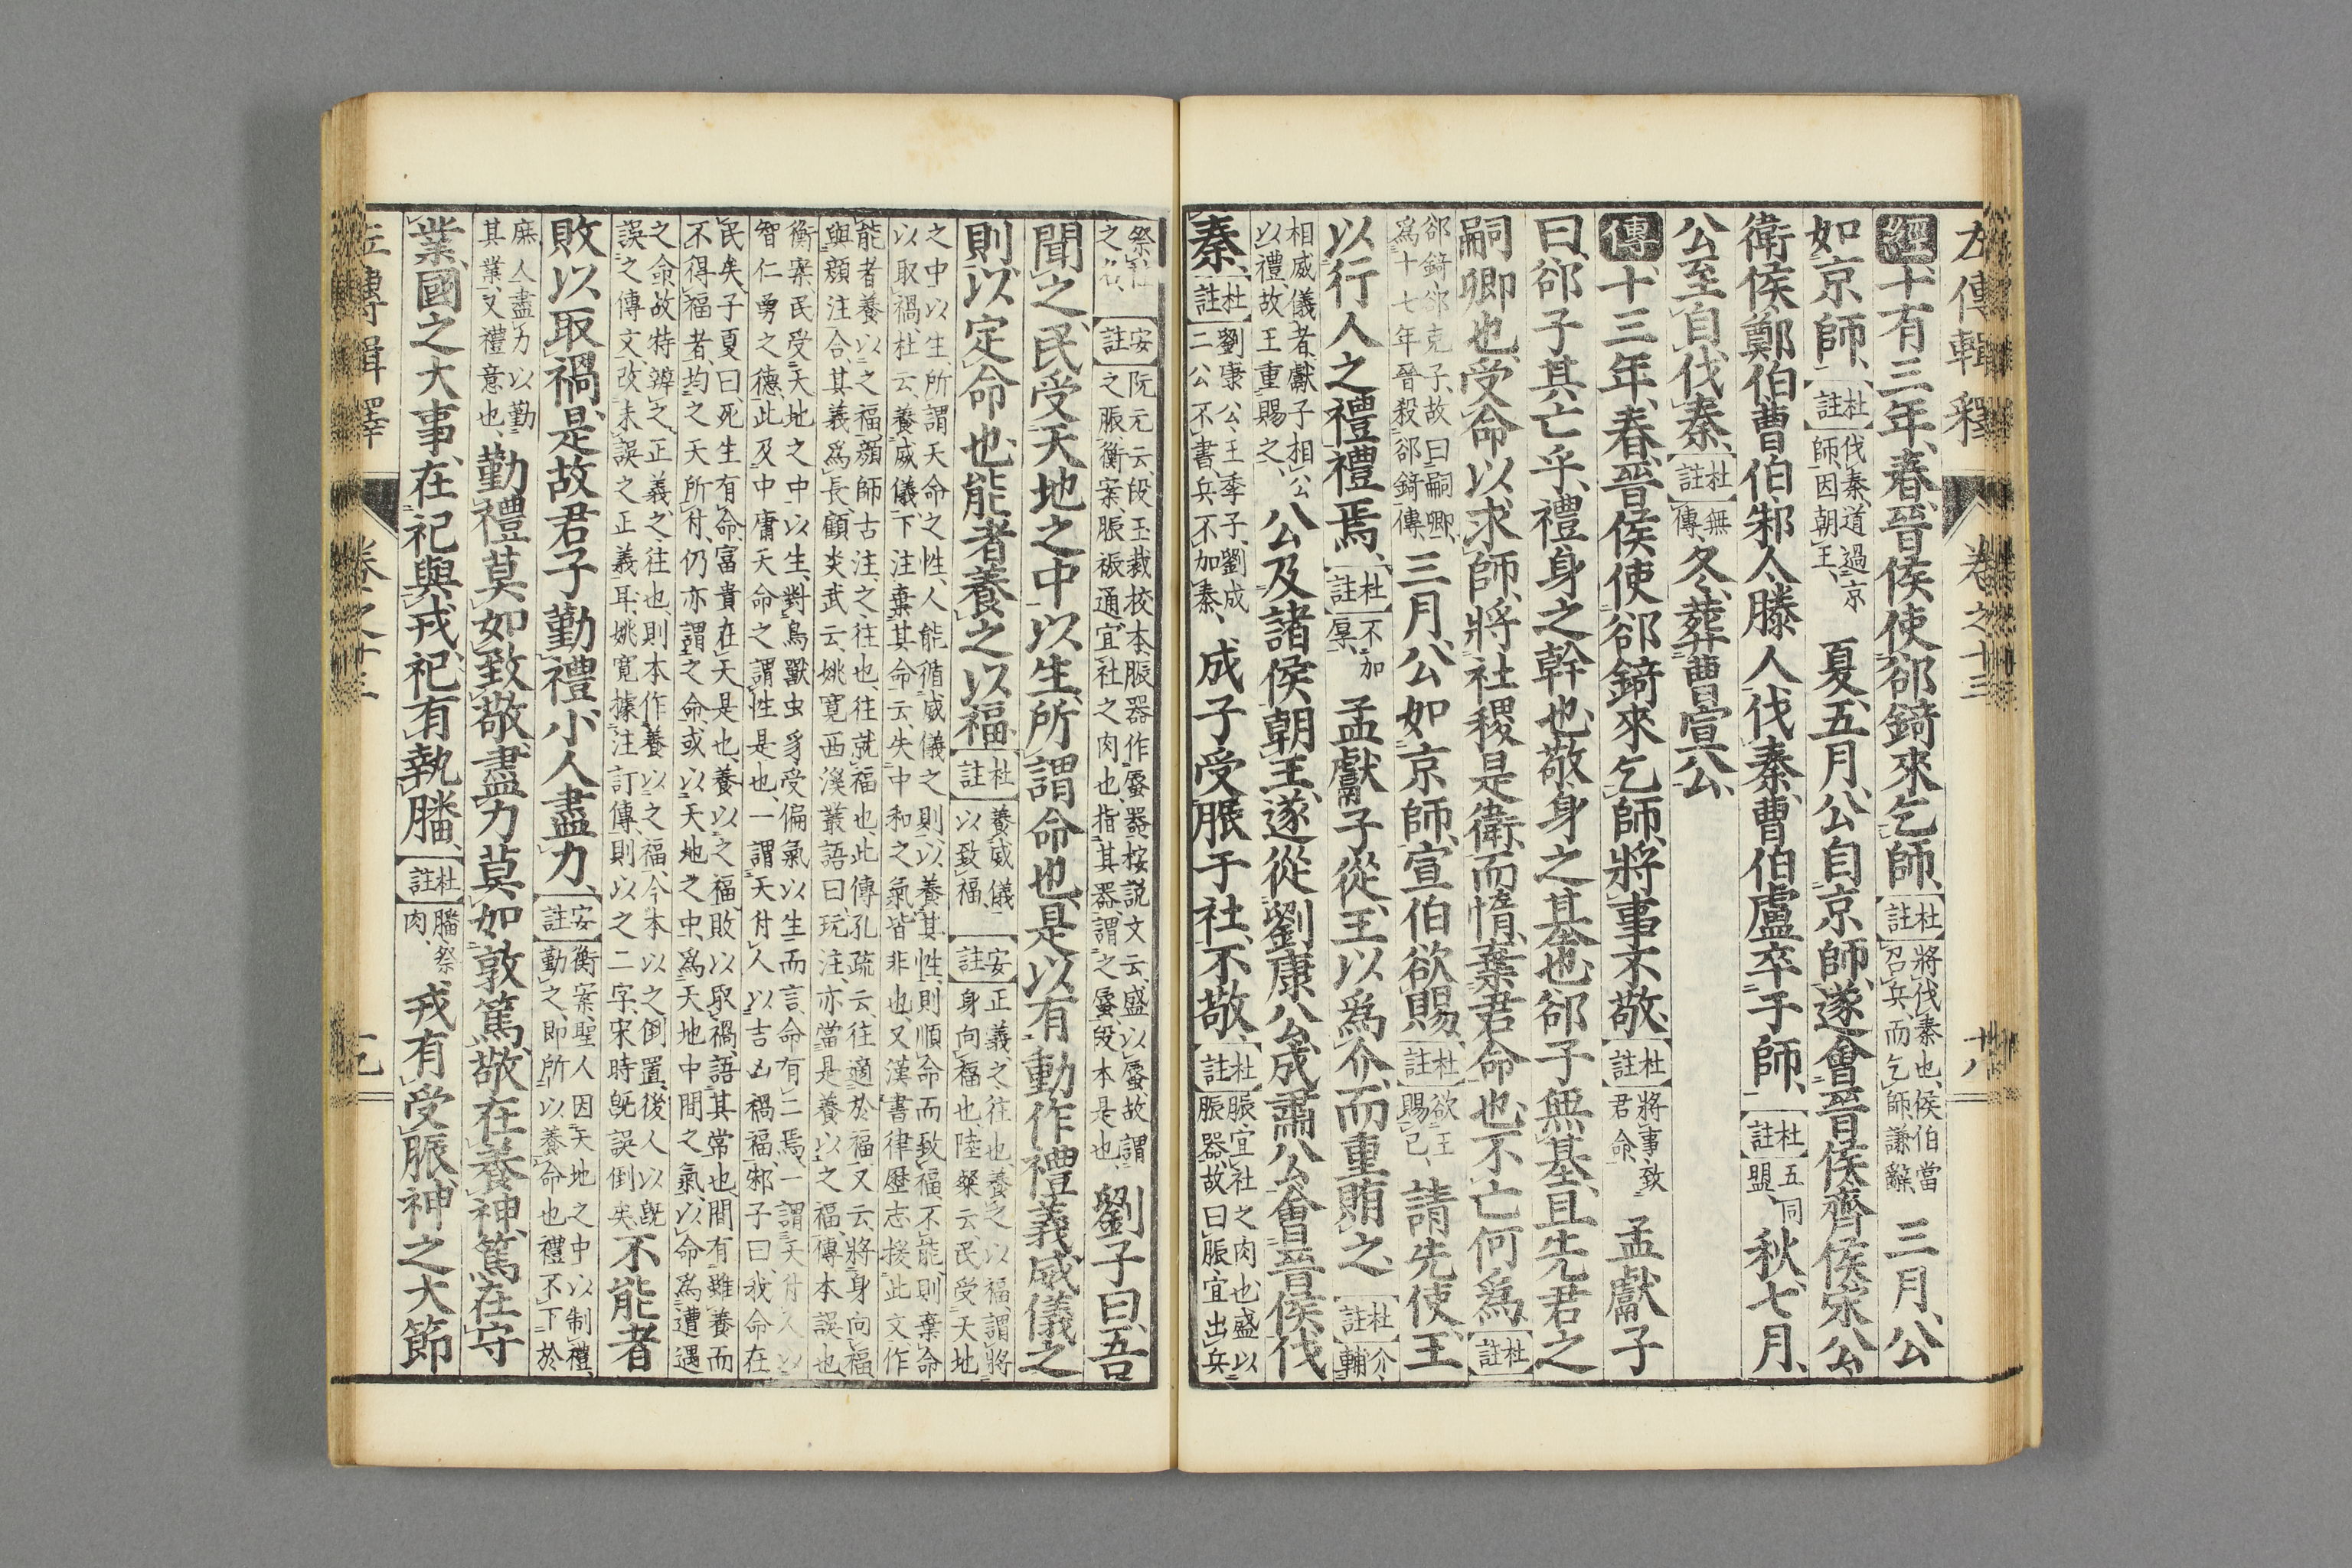 左傳輯釋　卷之十三　十八
經十有三年、春、晉侯使郤錡來乞師、杜註將伐秦也、侯伯當召兵而乞師、謙辭、三月、公
如京師、杜註伐秦、道過京師、因朝王、夏五月、公自京師、遂會晉侯齊侯宋公
衛侯鄭伯曹伯邾人滕人伐秦、曹伯盧卒于師、杜註五同盟、秋七月、
公至自伐秦、杜註無傳、冬、葬曹宣公、
傳十三年、春、晉侯使郤錡來乞師、將事不敬、杜註將事、致君命、孟獻子
曰、郤子其亡乎、禮身之幹也、敬身之基也、郤子無基、且先君之
嗣卿也、受命以求師、將社稷是衛、而惰、棄君命也、不亡何爲、杜註
郤錡郤克子、故曰嗣卿、爲十七年晉殺郤錡傳、三月、公如京師、宣伯欲賜、杜註欲王賜己、請先使、王
以行人之禮禮焉、杜註不加厚、孟獻子從、王以爲介、而重賄之、杜註介、輔
相威儀者、獻子相公以禮、故王重賜之、公及諸侯朝王、遂從劉康公、成肅公、會晉侯伐
秦、杜註劉康公、王季子、劉成二公不書兵、不加秦、成子受脤于社、不敬、杜註脤、宜社之肉也、盛以脤器、故曰脤、宜出兵
祭社之名、安註阮元云、段玉裁校本、脤器作蜃器、桉説文云、盛以蜃、故謂之脤、衡案、脤祳通、宜社之肉也、指其器謂之蜃、段本是也、劉子曰、吾
聞之、民受天地之中以生、所謂命也、是以有動作禮義威儀之
則、以定命也、能者養之以福、杜註養威儀以致福、安註正義、之往也、養之以福、謂將身向福也、陸粲云、民受天地
之中以生、所謂天命之性、人能循威儀之則、以養其性、則順命而致福、不能則棄命以取禍、杜云、養威儀、下注棄其命云、失中和之氣、皆非也、又漢書律歷志援此文作
能者養以之福、顏師古注、之、往也、往就福也、此傳孔疏云、往適於福、又云、將身向福、與顏注合、其義爲長、顧炎武云、姚寬西溪叢語曰、玩注、亦當是養以之福、傳本誤也、
衡案、民受天地之中以生、對鳥獸虫豸受偏氣以生而言、命有二焉、一謂天付人以智仁勇之德、此及中庸天命之謂性是也、一謂天付人以吉凶禍福、邪子曰、我命在
民矣、子夏曰、死生有命、富貴在天是也、養以之福、敗以取禍、語其常也、間有雖養而不得福者、均之天所付、仍亦謂之命、或以天地之中、爲天地中間之氣、以命爲遭遇
之命、故特辨之、正義、之往也、則本作養以之福、今本以之倒置、後人以既誤之傳文、改未誤之正義耳、姚寬據注訂傳、則以之二字、宋時既誤倒矣、不能者
敗以取禍、是故君子勤禮、小人盡力、安註衡案、聖人因天地之中以制禮、勤之、即所以養命也、禮不下於
庶人、盡力以勤其業、又禮意也、勤禮莫如致敬、盡力莫如敦篤、敬在養神、篤在守
業、國之大事、在祀與戎、祀有執膰、杜註膰、祭肉、戎有受脤、神之大節
左傳輯釋　卷之十三